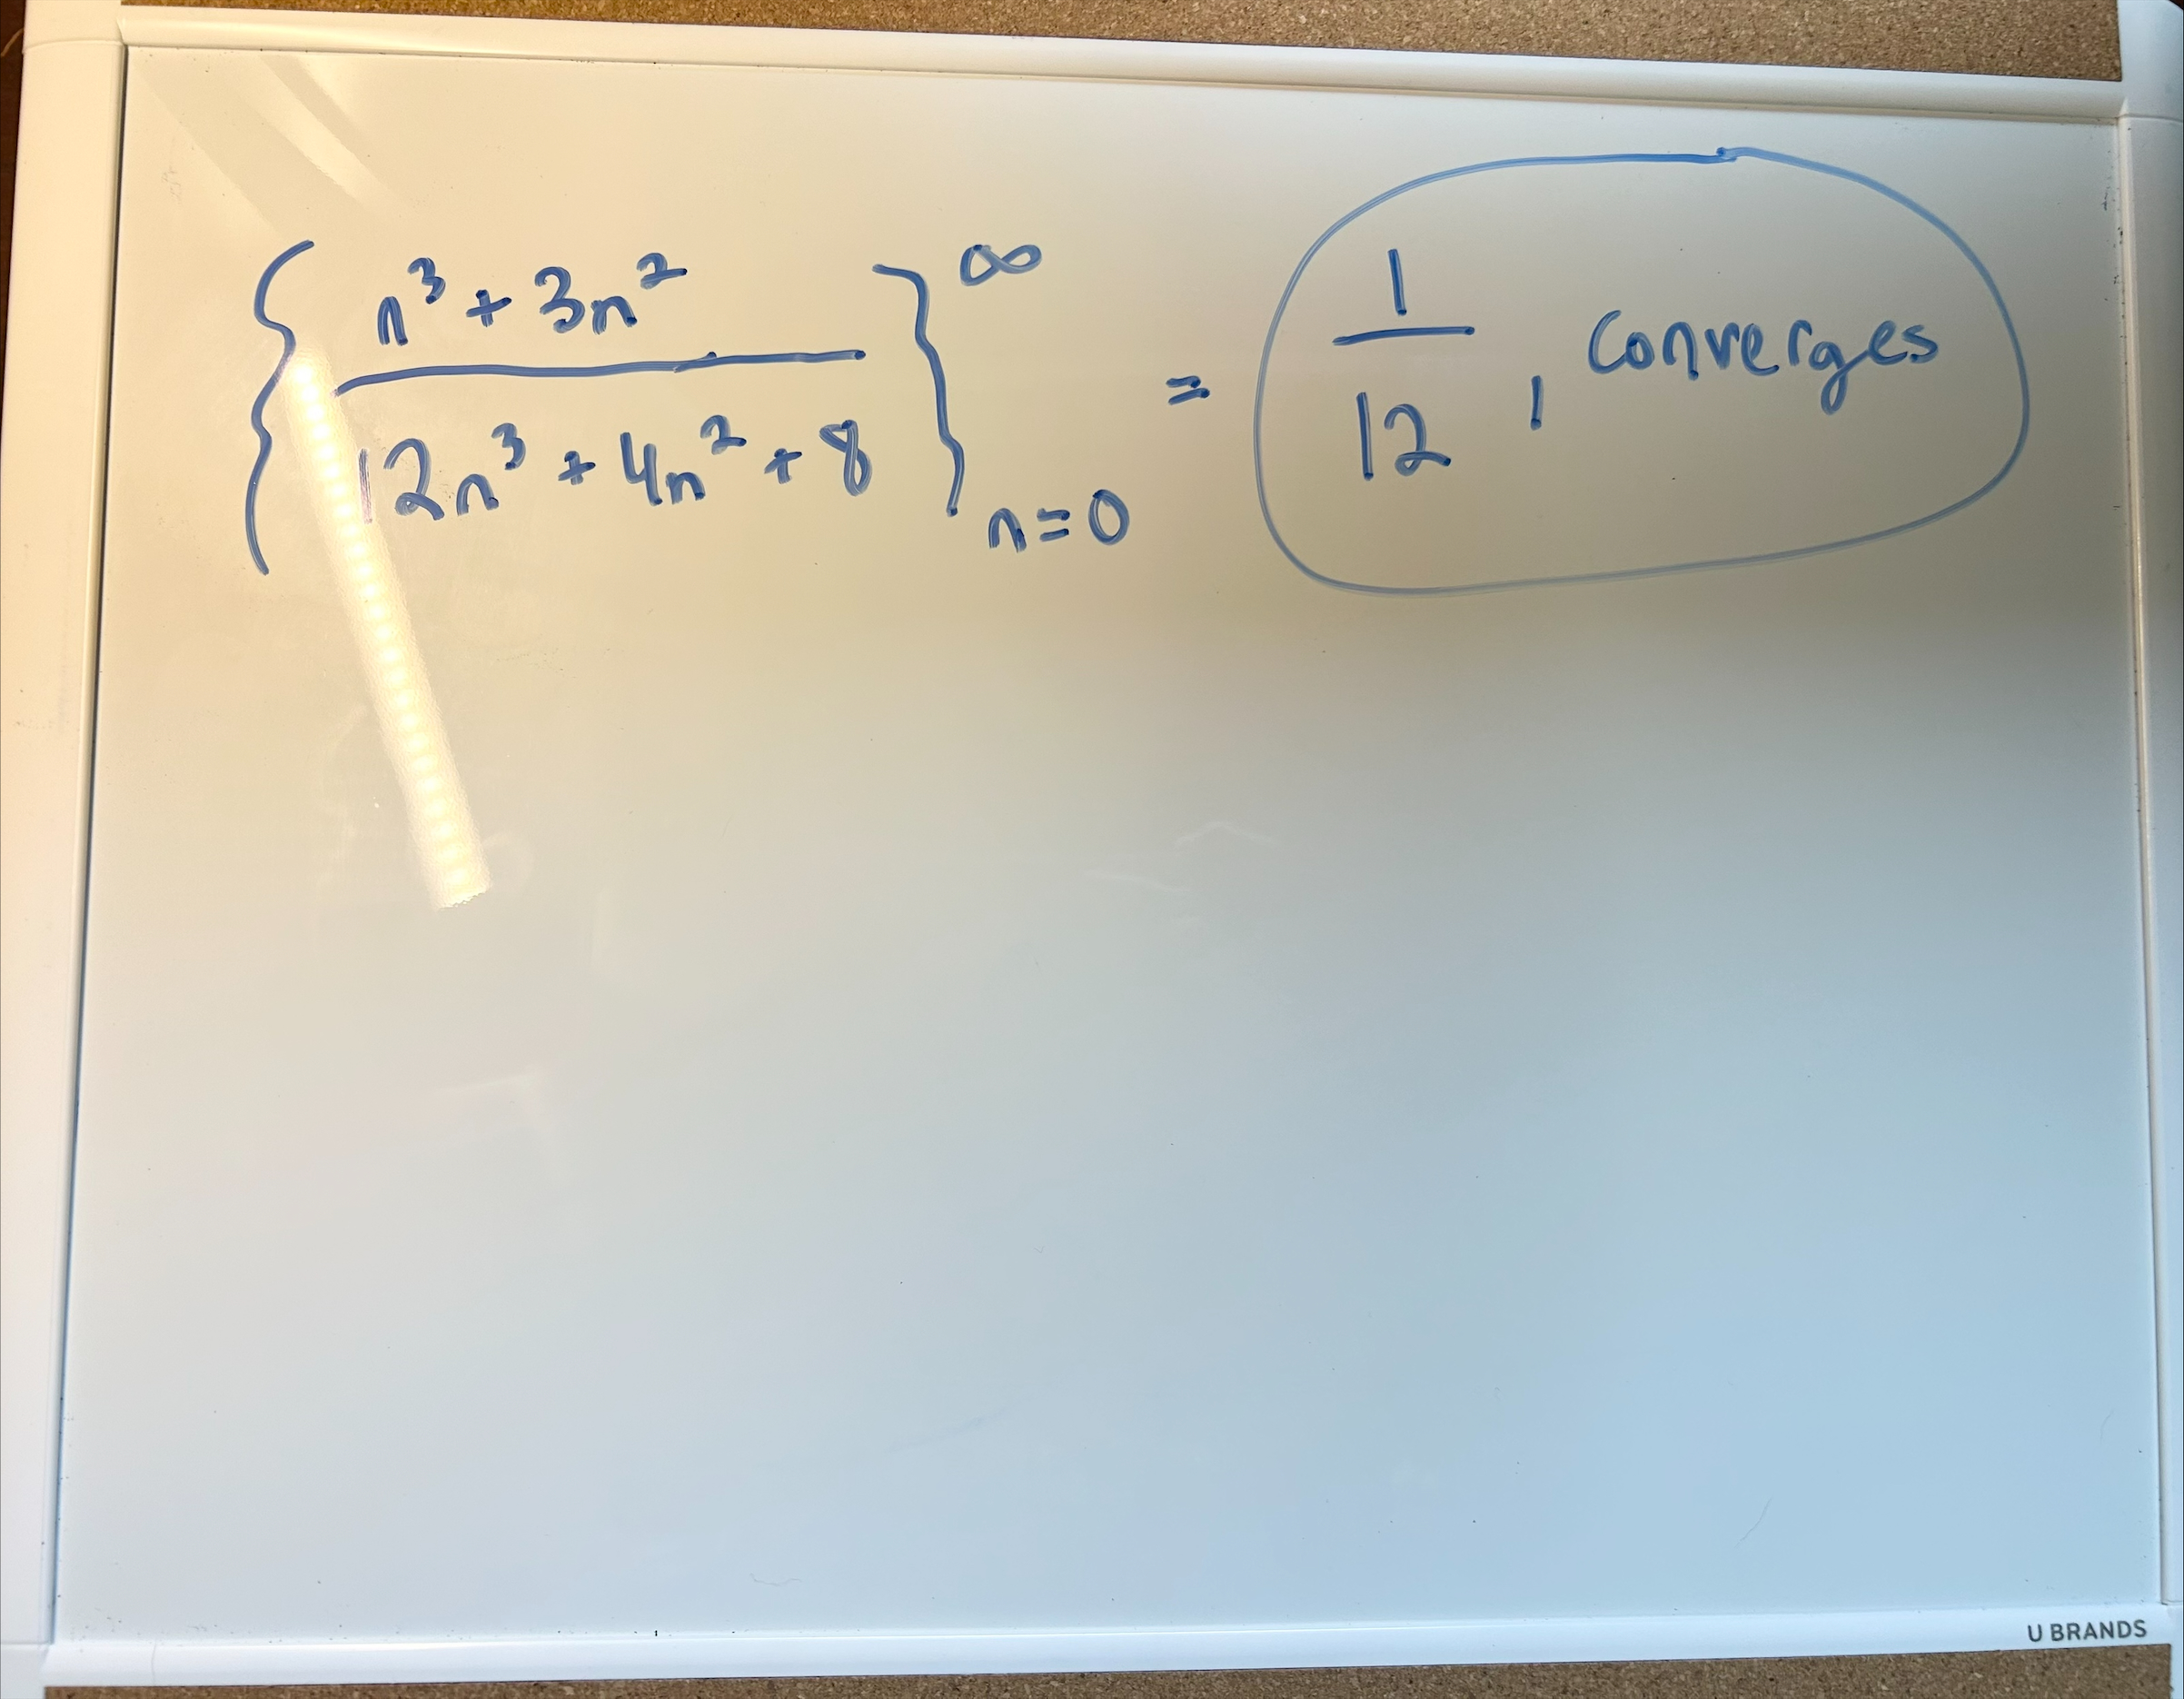 { (n³ + 3n²) / (12n³ + 4n² + 8) }^∞_{n=0} = 1/12, converges
U BRANDS